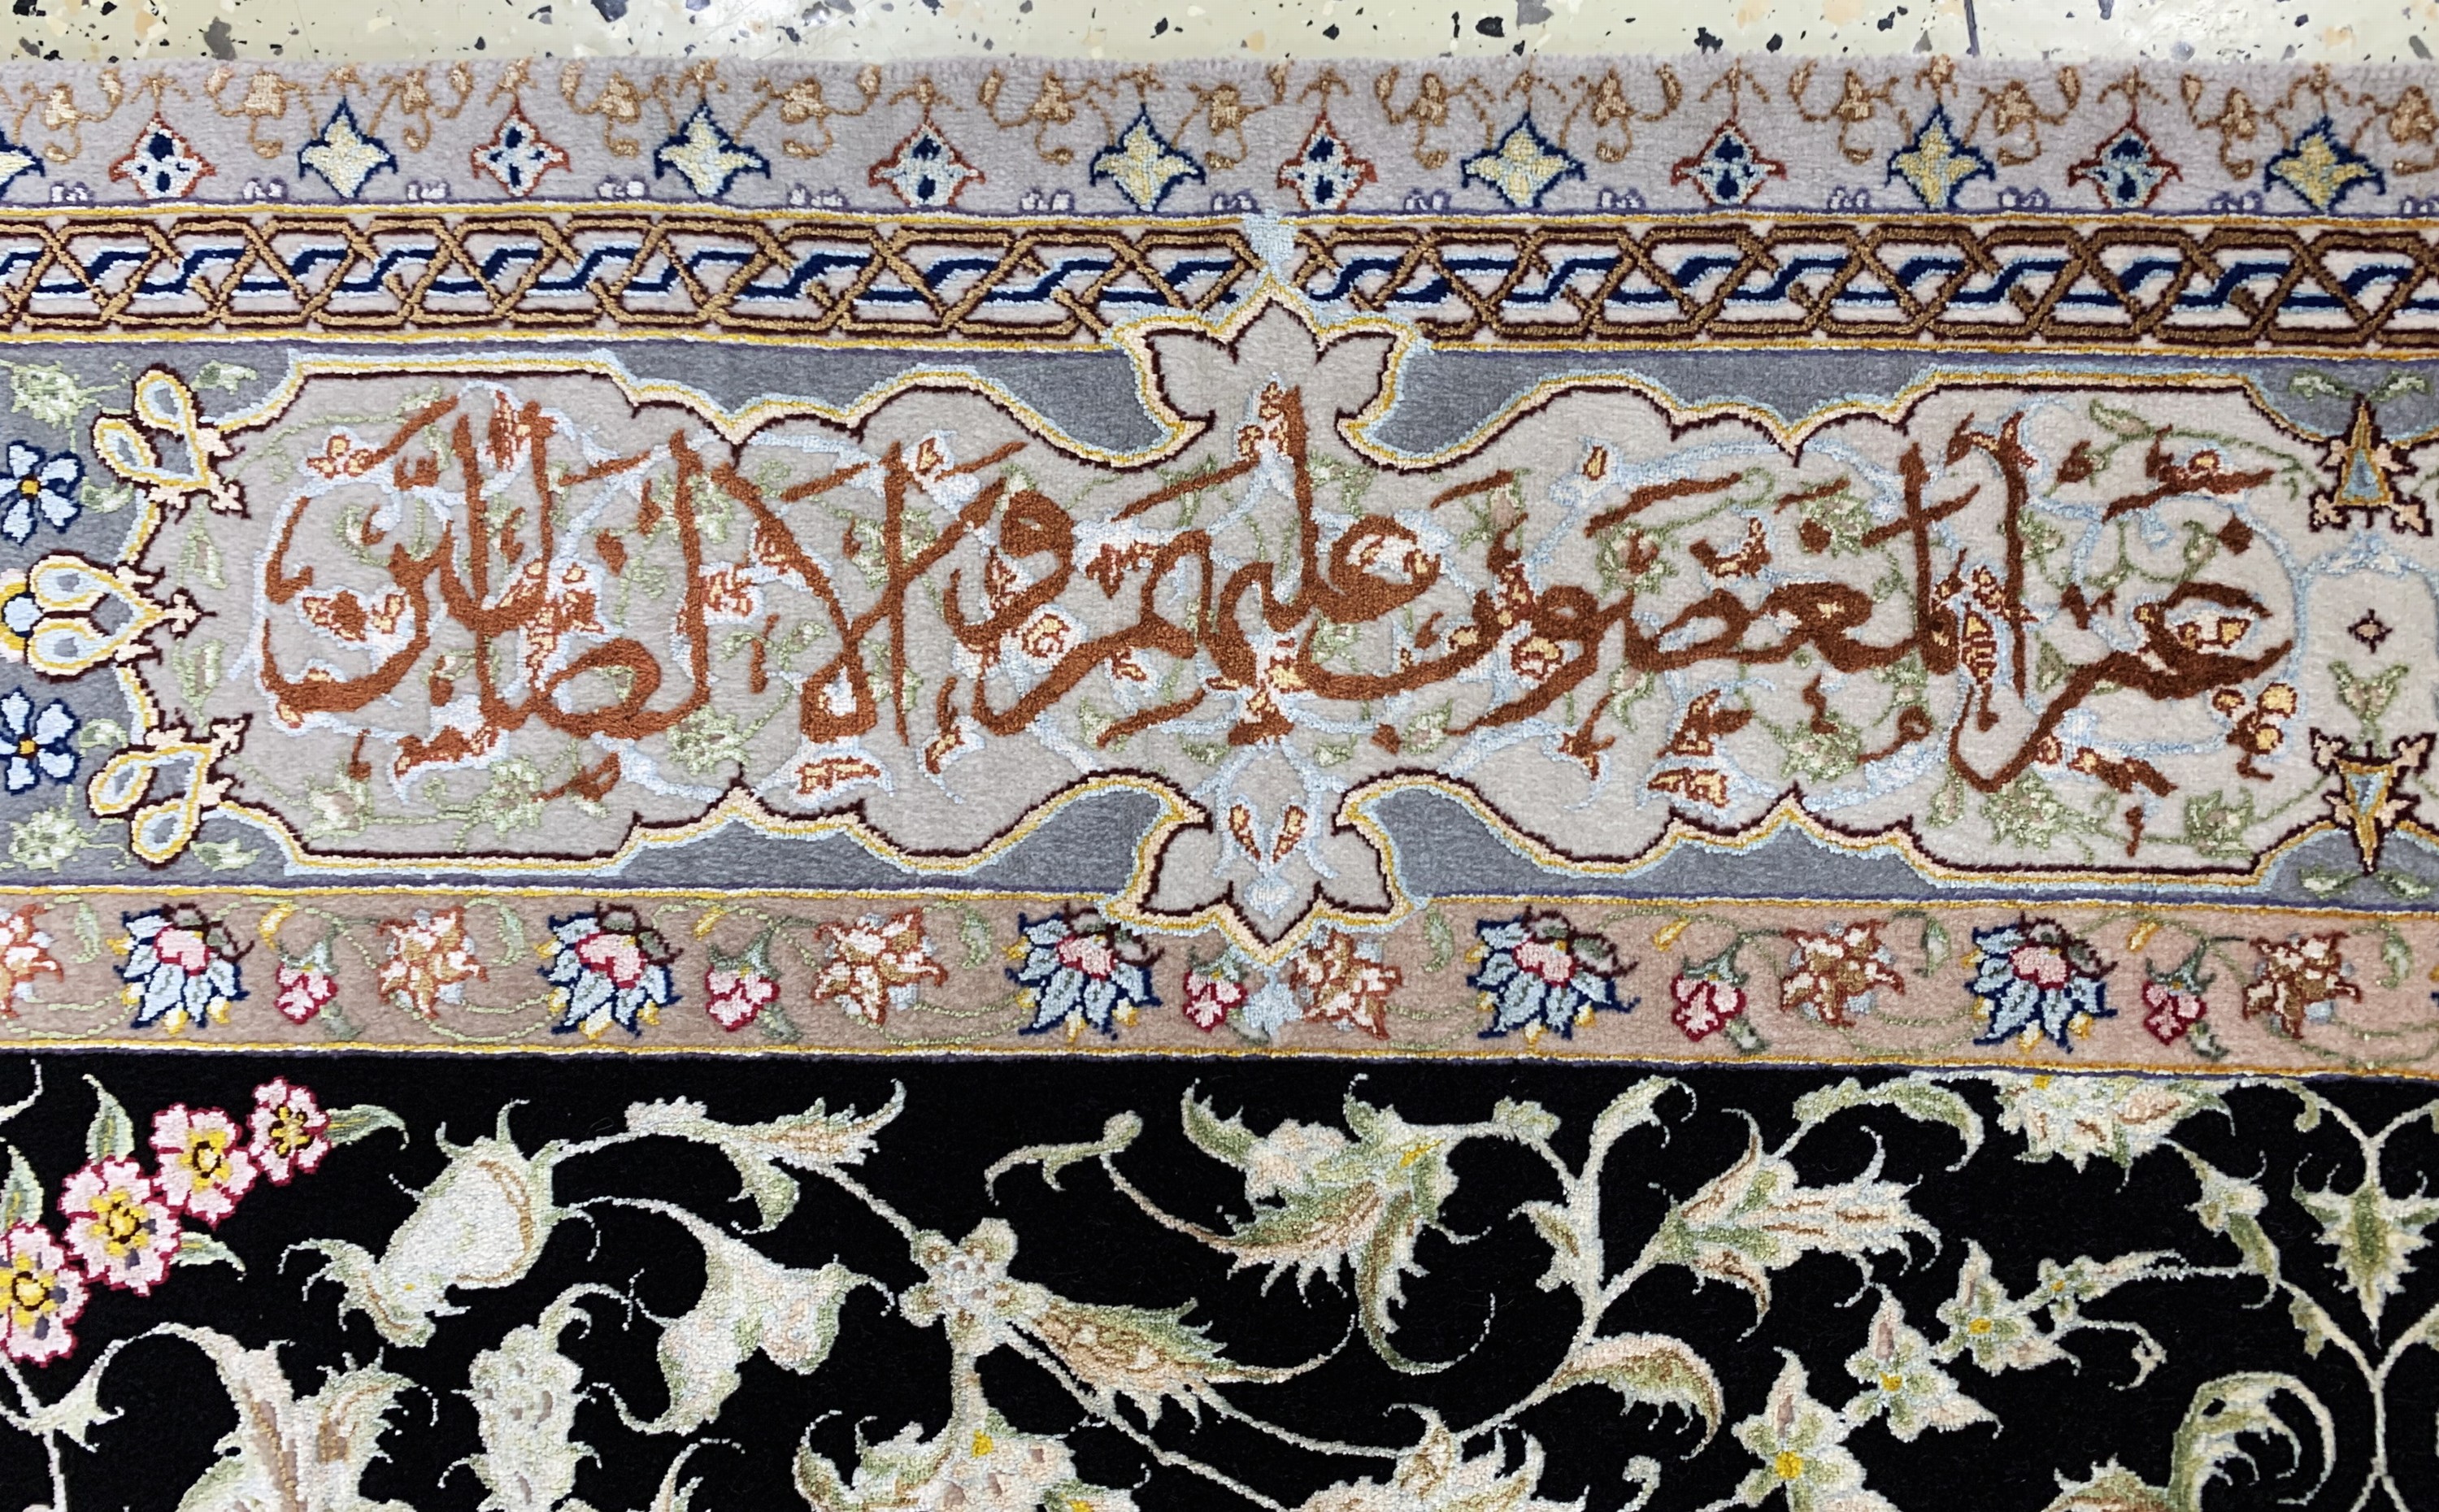 غَيْرِ الْمَغْضُوبِ عَلَيْهِمْ وَلَا الضَّالِّينَ